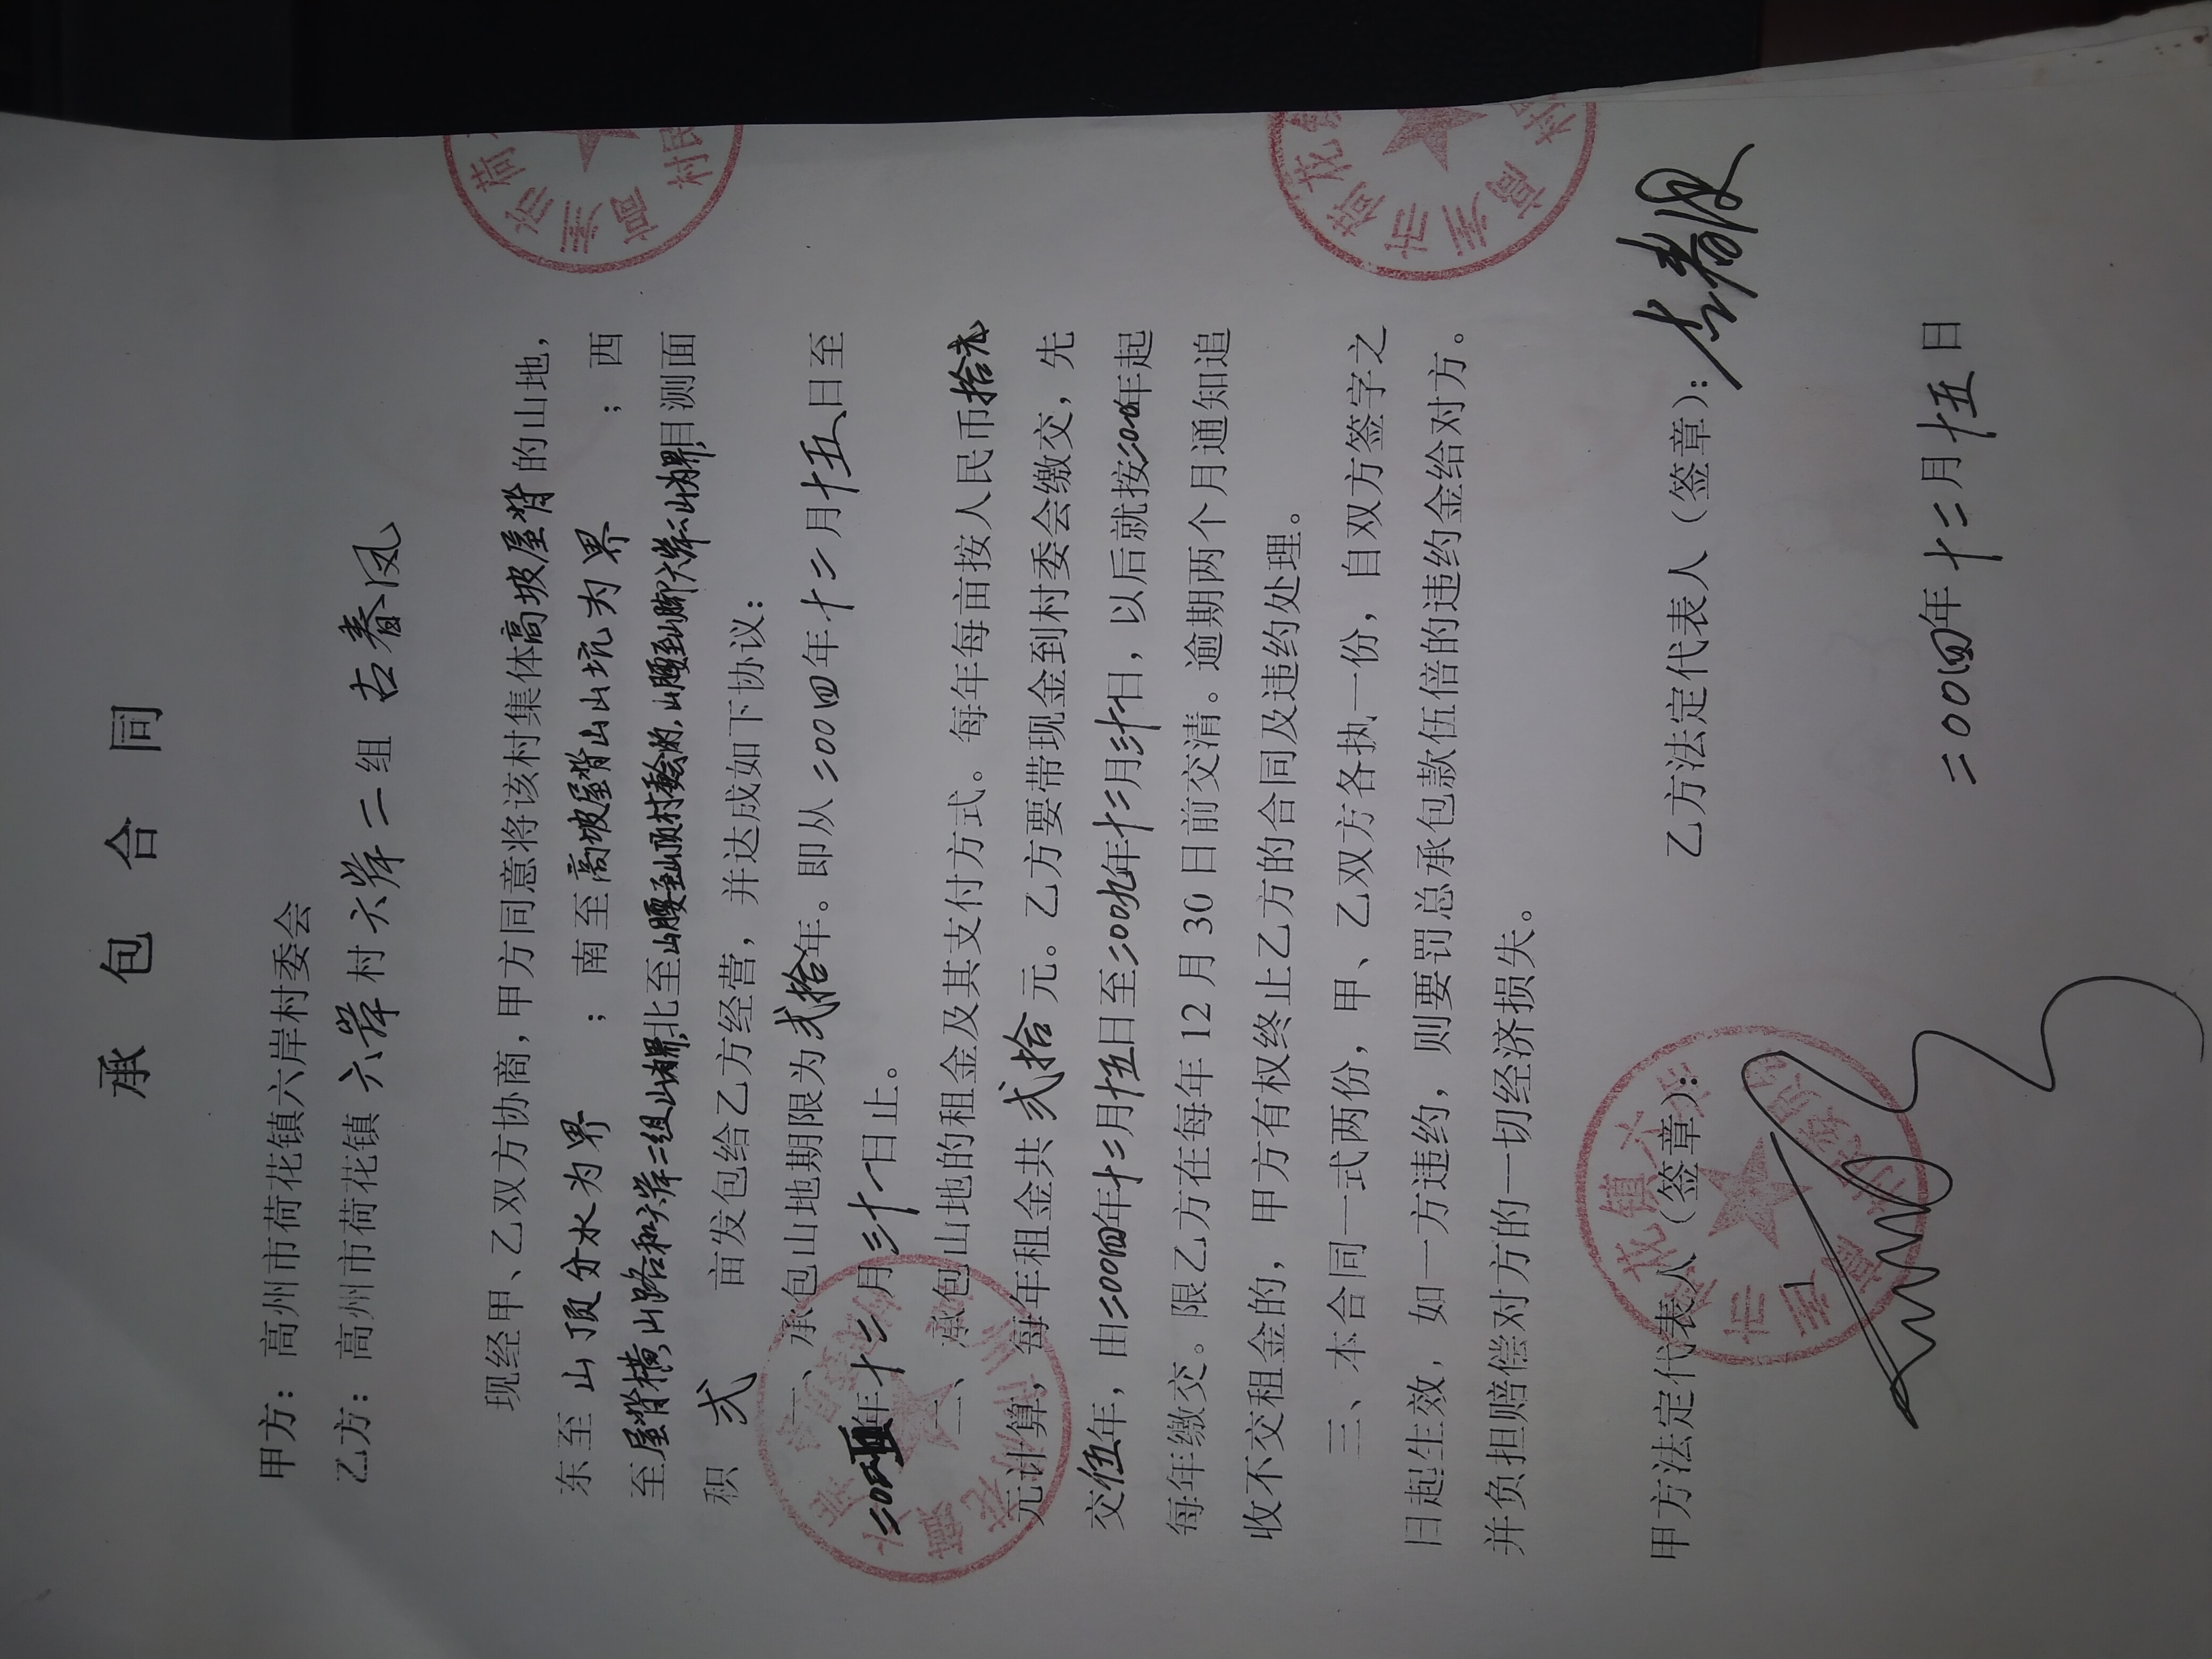 承包合同
甲方：高州市荷花镇六岸村委会
乙方：高州市荷花镇六岸村六岸二组 古春凤
现经甲、乙双方协商，甲方同意将该村集体高坡屋背的山地，
东至山顶分水为界；南至高坡屋背山山坑为界；西
至屋背横山路和六岸三组山为界，北至山腰至山顶村委会的，山腰到山脚六岸二山为界，目测面
积 贰 亩发包给乙方经营，并达成如下协议：
一、承包山地期限为贰拾年。即从二00四年十二月十五日至
二0年十二月三十一日止。
二、承包山地的租金及其支付方式。每年每亩按人民币拾元
元计算，每年租金共贰拾元。乙方要带现金到村委会缴交，先
交伍年，由二00四年十二月十五日至二00九年十二月三十日，以后就按年起
每年缴交。限乙方在每年12月30日前交清。逾期两个月通知追
收不交租金的，甲方有权终止乙方的合同及违约处理。
三、本合同一式两份，甲、乙双方各执一份，自双方签字之
日起生效，如一方违约，则要罚总承包款伍倍的违约金给对方。
并负担赔偿对方的一切经济损失。
甲方法定代表人（签章）： 乙方法定代表人（签章）：
二00四年十二月十五日